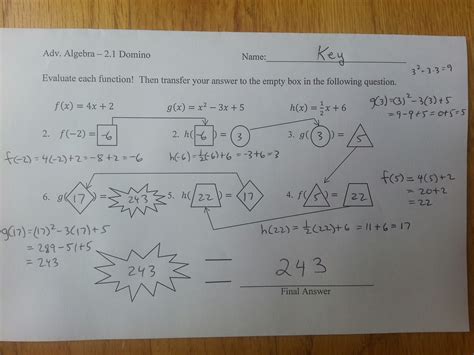 Adv. Algebra – 2.1 Domino
Name: Key
3²=3·3=9
Evaluate each function! Then transfer your answer to the empty box in the following question.
f(x) = 4x + 2
g(x) = x² – 3x + 5
h(x) = ½x + 6
g(3)=(3)²-3(3)+5
=9-9+5=0+5=5
2. f(–2) = -6
2. h(-6) = 3
3. g(3) = 5
f(-2)=4(-2)+2=-8+2=-6
h(-6)=½(-6)+6=-3+6=3
f(5)=4(5)+2
=20+2
=22
6. g(17) = 243
5. h(22) = 17
4. f(5) = 22
g(17)=(17)²-3(17)+5
=289-51+5
=243
h(22)=½(22)+6=11+6=17
243 = 243
Final Answer